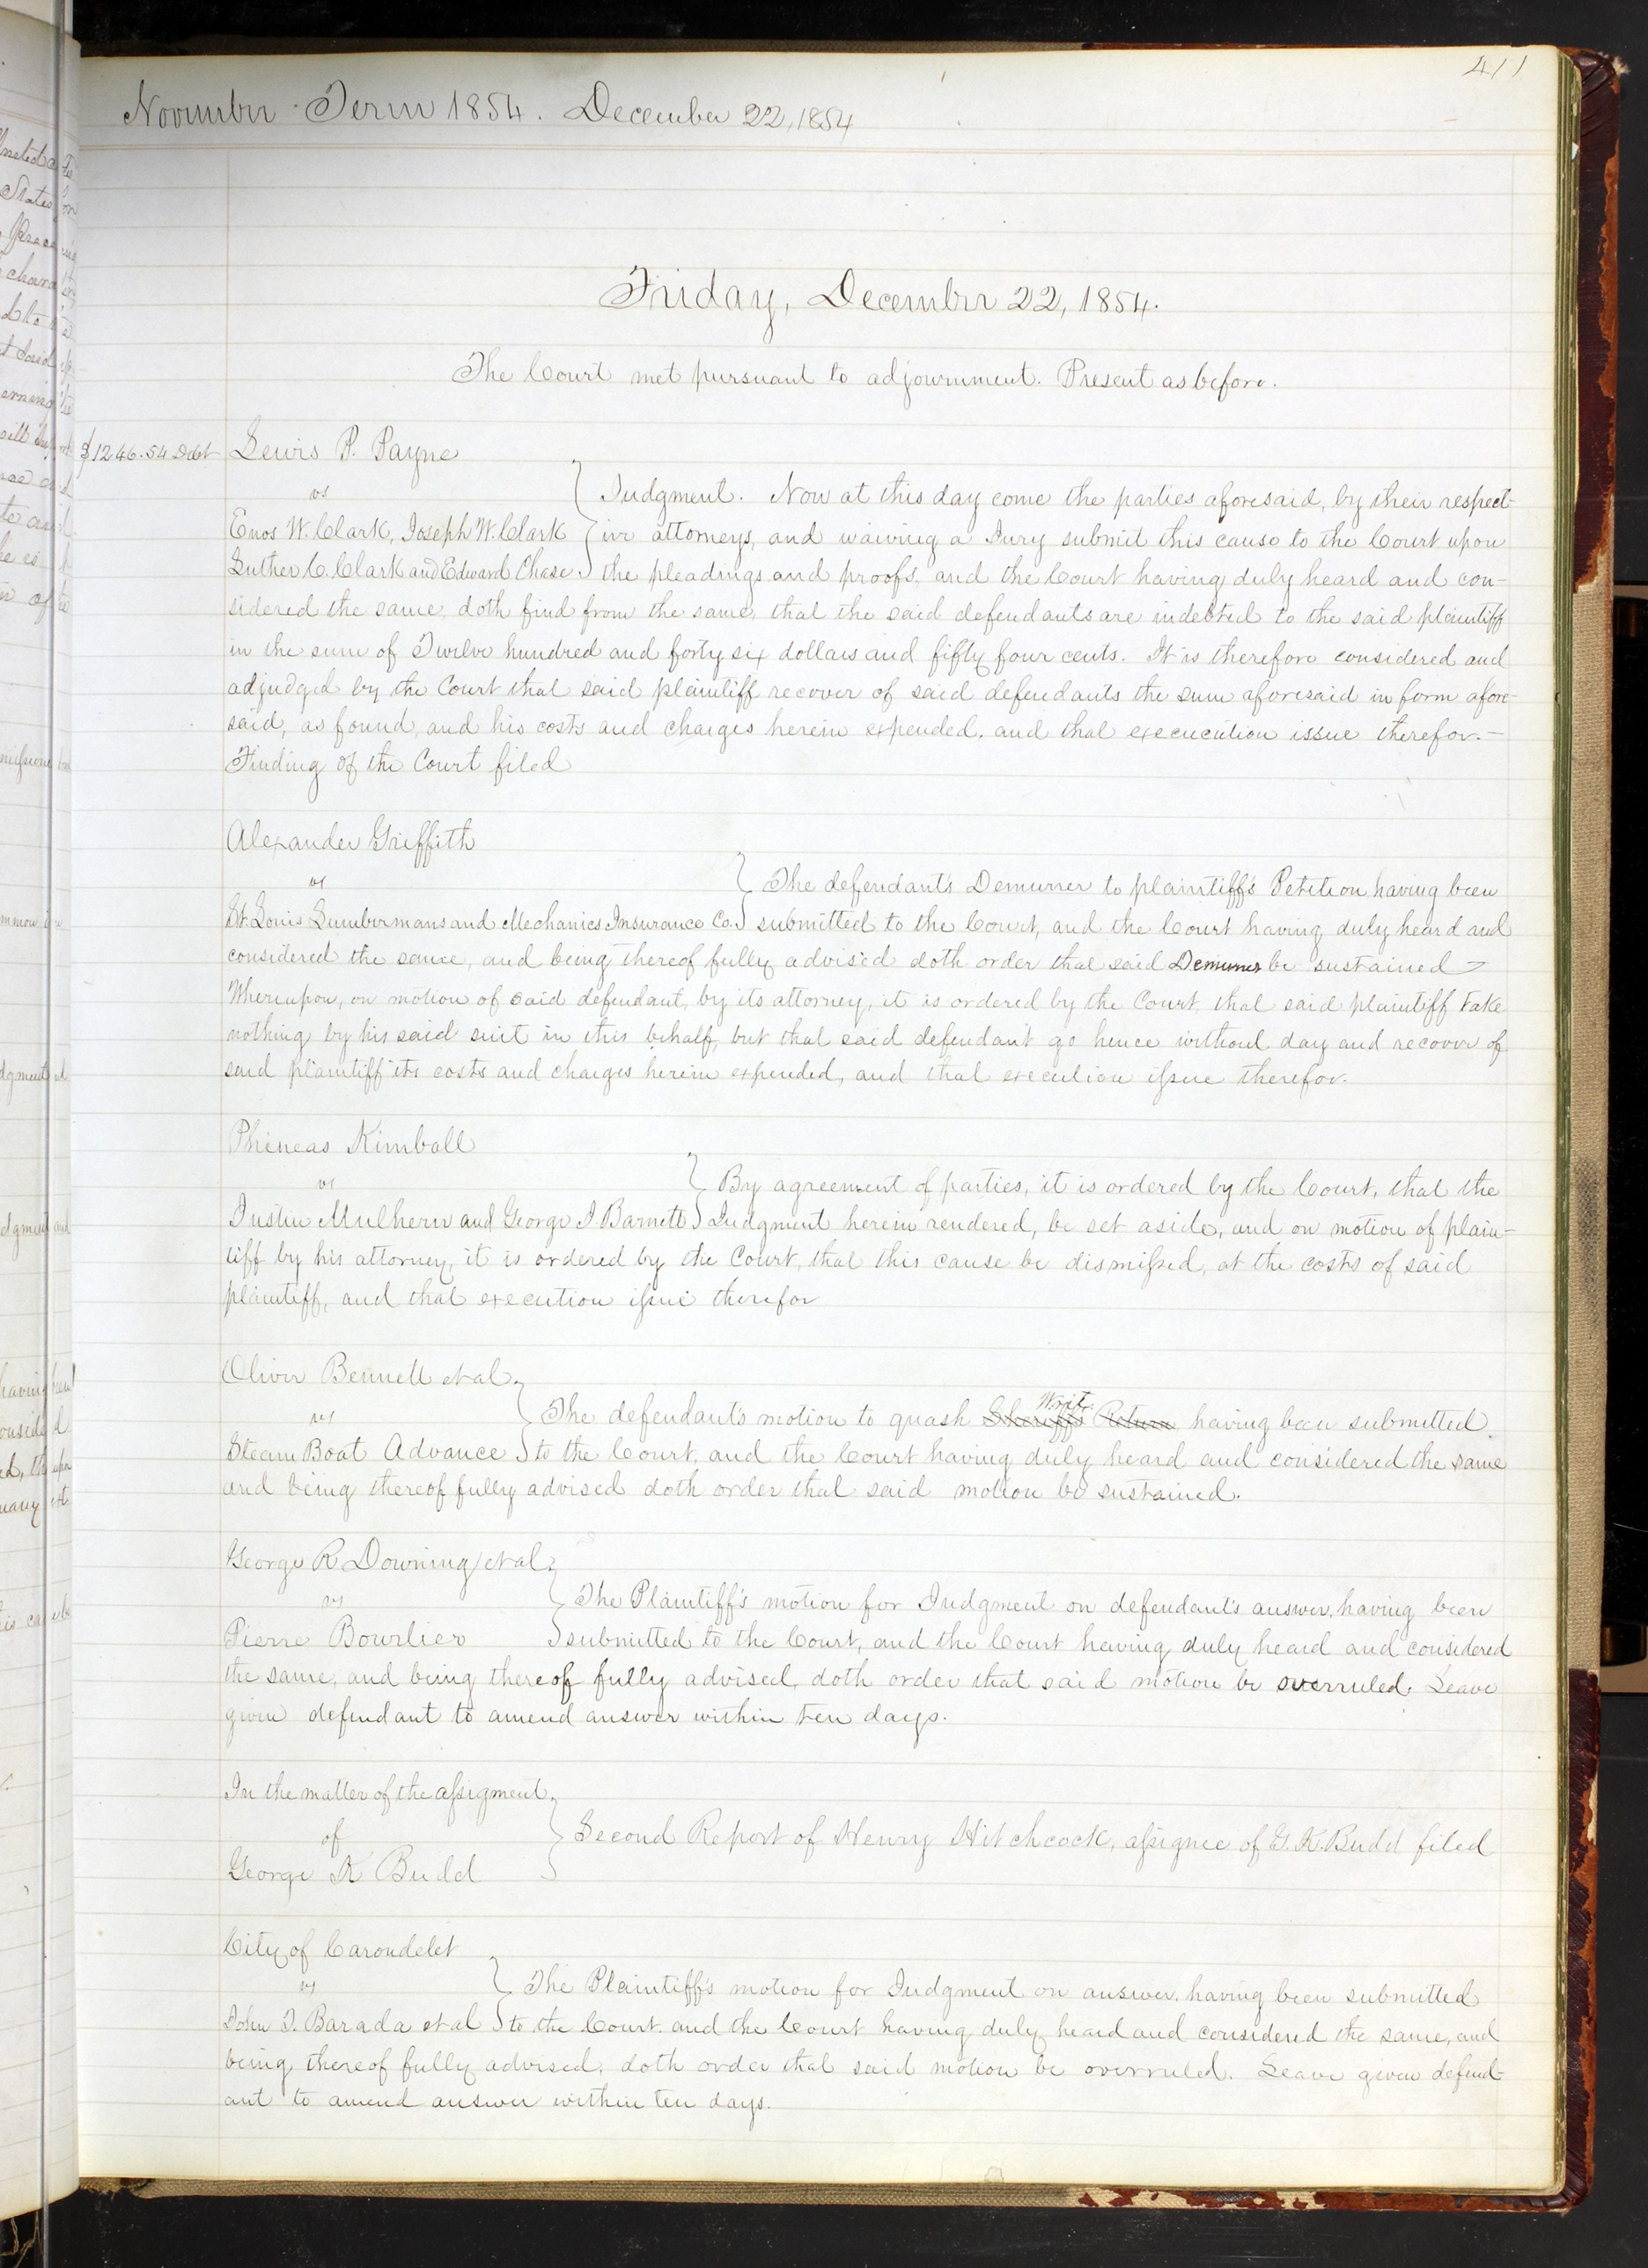 411
November Term 1854. December 22, 1854
Friday, December 22, 1854.
The Court met pursuant to adjournment. Present as before.
$1246.54 Debt
Lewis P. Payne
vs
Enos W. Clark, Joseph W. Clark
Luther C. Clark and Edward Chase
Judgment. Now at this day come the parties aforesaid, by their respect-
ive attorneys, and waiving a Jury submit this cause to the Court upon
the pleadings and proofs, and the Court having duly heard and con-
sidered the same, doth find from the same, that the said defendants are indebted to the said plaintiff
in the sum of Twelve hundred and forty six dollars and fifty four cents. It is therefore considered and
adjudged by the Court that said plaintiff recover of said defendants the sum aforesaid in form afore-
said, as found, and his costs and charges herein expended, and that excecution issue therefor.-
Finding of the Court filed
Alexander Griffith
vs
St. Louis Lumbermans and Mechanics Insurance Co.
The defendant's Demurrer to plaintiff's Petition having been
submitted to the Court, and the Court having duly heard and
considered the same, and being thereof fully advised doth order that said Demurrer be sustained
Whereupon, on motion of said defendant, by its attorney, it is ordered by the Court, that said plaintiff take
nothing by his said suit in this behalf, but that said defendant go hence without day and recover of
said plaintiff its costs and charges herein expended, and that execution issue therefor.
Phineas Kimball
vs
Justin Mulhern and George I. Barnett
By agreement of parties, it is ordered by the Court, that the
Judgment herein rendered, be set aside, and on motion of plain-
tiff by his attorney, it is ordered by the Court, that this cause be dismissed, at the costs of said
plaintiff, and that execution issue therefor
Oliver Bennett et al.
vs
Steam Boat Advance
The defendant's motion to quash Sheriff's Return Writ having been submitted
to the Court, and the Court having duly heard and considered the same
and being thereof fully advised doth order that said motion be sustained.
George R Downing et al
vs
Pierre Bourlier
The Plaintiff's motion for Judgment on defendant's answer, having been
submitted to the Court, and the Court having duly heard and considered
the same, and being thereof fully advised, doth order that said motion be overruled. Leave
given defendant to amend answer within ten days.
In the matter of the assigment
of
George K Budd
Second Report of Henry Hitchcock, assignee of G. K. Budd filed
City of Carondelet
vs
John T. Barada et al
The Plaintiff's motion for Judgment on answer, having been submitted
to the Court, and the Court having duly heard and considered the same, and
being thereof fully advised, doth order that said motion be overruled. Leave given defend-
ant to amend answer within ten days.